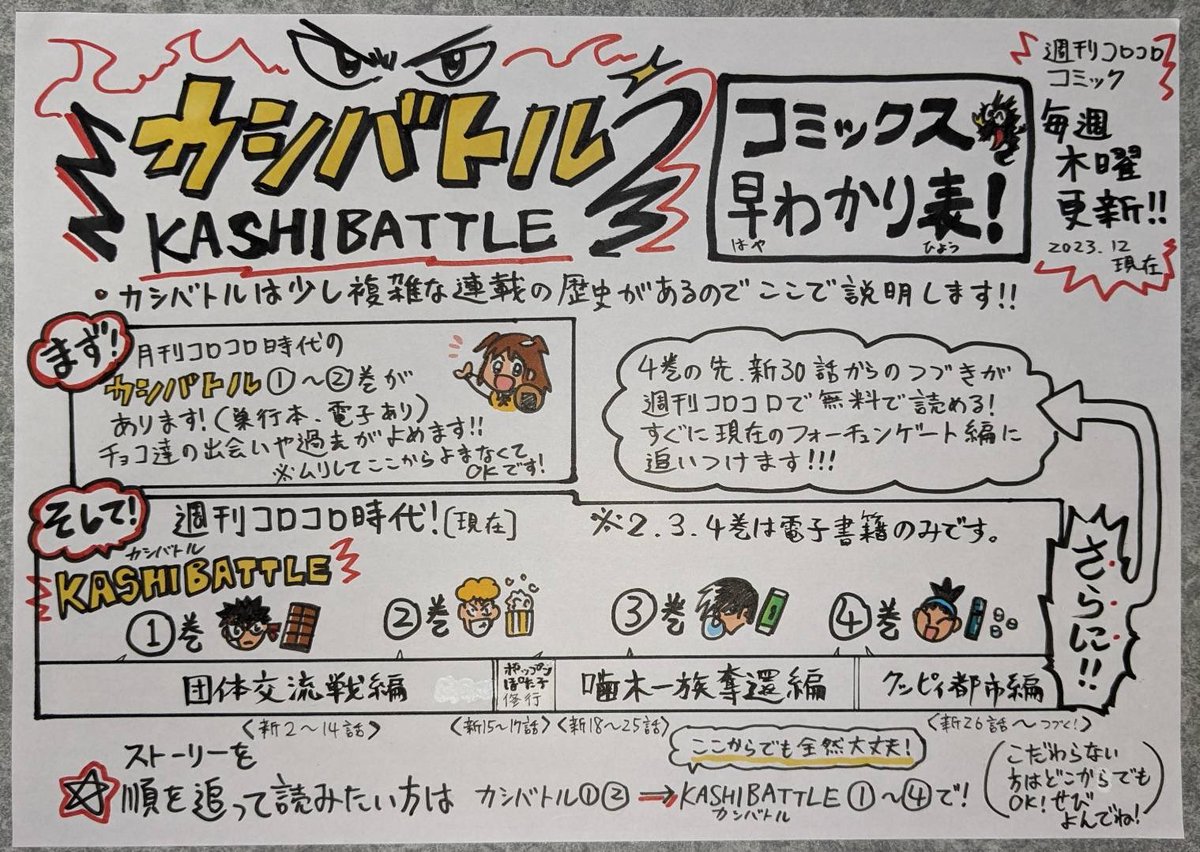 カシバトル
KASHIBATTLE
コミックス
早わかり表!
はや
ひょう
週刊コロコロ
コミック
毎週
木曜
更新!!
2023.12
現在
・カシバトルは少し複雑な連載の歴史があるのでここで説明します!!
まず!
月刊コロコロ時代の
カシバトル①〜②巻が
あります!(単行本、電子あり)
チョコ達の出会いや過去がよめます!!
※ムリしてここからよまなくて
OKです!
4巻の先、新30話からのつづきが
週刊コロコロで無料で読める!
すぐに現在のフォーチュンゲート編に
追いつけます!!!
そして!
週刊コロコロ時代![現在]
※2.3.4巻は電子書籍のみです。
さらに!!
カシバトル
KASHIBATTLE
①巻
②巻
③巻
④巻
団体交流戦編
ポップン
ぽた子
修行
噛木一族奪還編
クンピィ都市編
<新2〜14話>
<新15〜17話>
<新18〜25話>
<新26話〜つづく!>
ここからでも全然大丈夫!
☆ストーリーを
順を追って読みたい方は
カシバトル①②→KASHIBATTLE①〜④で!
カシバトル
(こだわらない
方はどこからでも
OK!ぜひ
よんでね!)